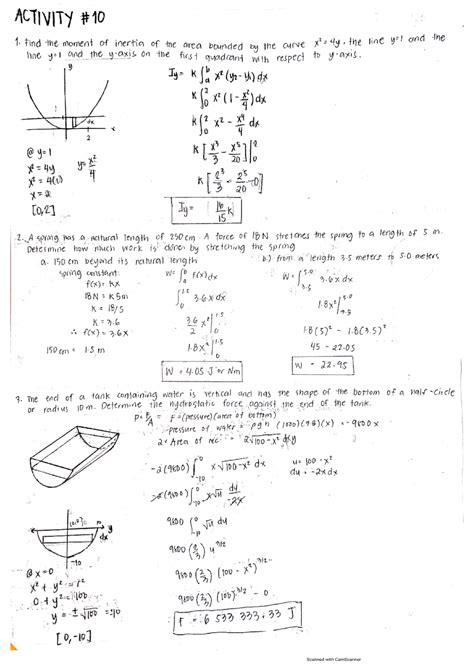 ACTIVITY #10
1. Find the moment of inertia of the area bounded by the curve x² = 4y, the line y=1 and the
line y=1 and the y-axis on the first quadrant with respect to y-axis.
y
1
dx
2
x
@ y=1
x² = 4y
x² = 4(1)
x = 2
[0,2]
y = x²/4
Iy = k ∫_a^b x² (y₂ - y₁) dx
k ∫_0^2 x² (1 - x²/4) dx
k ∫_0^2 x² - x⁴/4 dx
k [x³/3 - x⁵/20] |_0^2
k [2³/3 - 2⁵/20 - 0]
Iy = 16/15 k
2. A spring has a natural length of 250 cm. A force of 18 N stretches the spring to a length of 5 m.
Determine how much work is done by stretching the spring
a. 150 cm beyond its natural length
spring constant:
f(x) = kx
18N = k5m
k = 18/5
k = 3.6
∴ f(x) = 3.6x
150 cm = 1.5 m
W = ∫_a^b f(x) dx
∫_0^1.5 3.6x dx
3.6/2 x² |_0^1.5
1.8x² |_0^1.5
W = 4.05 J or Nm
b.) from a length 3.5 meters to 5.0 meters
W = ∫_3.5^5.0 3.6x dx
1.8x² |_3.5^5.0
1.8(5)² - 1.8(3.5)²
45 - 22.05
W = 22.95
3. The end of a tank containing water is vertical and has the shape of the bottom of a half-circle
or radius 10 m. Determine the hydrostatic force against the end of the tank.
F = (pressure)(area of bottom)
pressure of water = ρgh (1000)(9.8)(x) = -9800x
-2(9800) ∫_-10^0 x√100-x² dx
u = 100 - x²
du = -2x dx
9800 ∫_-10^0 √u du
9800 (2/3) u^3/2
9800 (2/3) (100 - x²)^3/2
9800 (2/3) (100)^3/2 - 0
F = 6 533 333.33 J
y
dx
-10
@ x=0
x² + y² = r²
0 + y² = 100
y = ±√100 = ±10
[0,-10]
Scanned with CamScanner